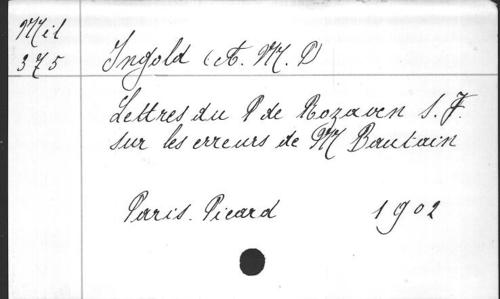 Mil
375
Ingold (A. M. P)
Lettres du P de Rozaven S. J.
sur les erreurs de M Bautain
Paris. Picard 1902